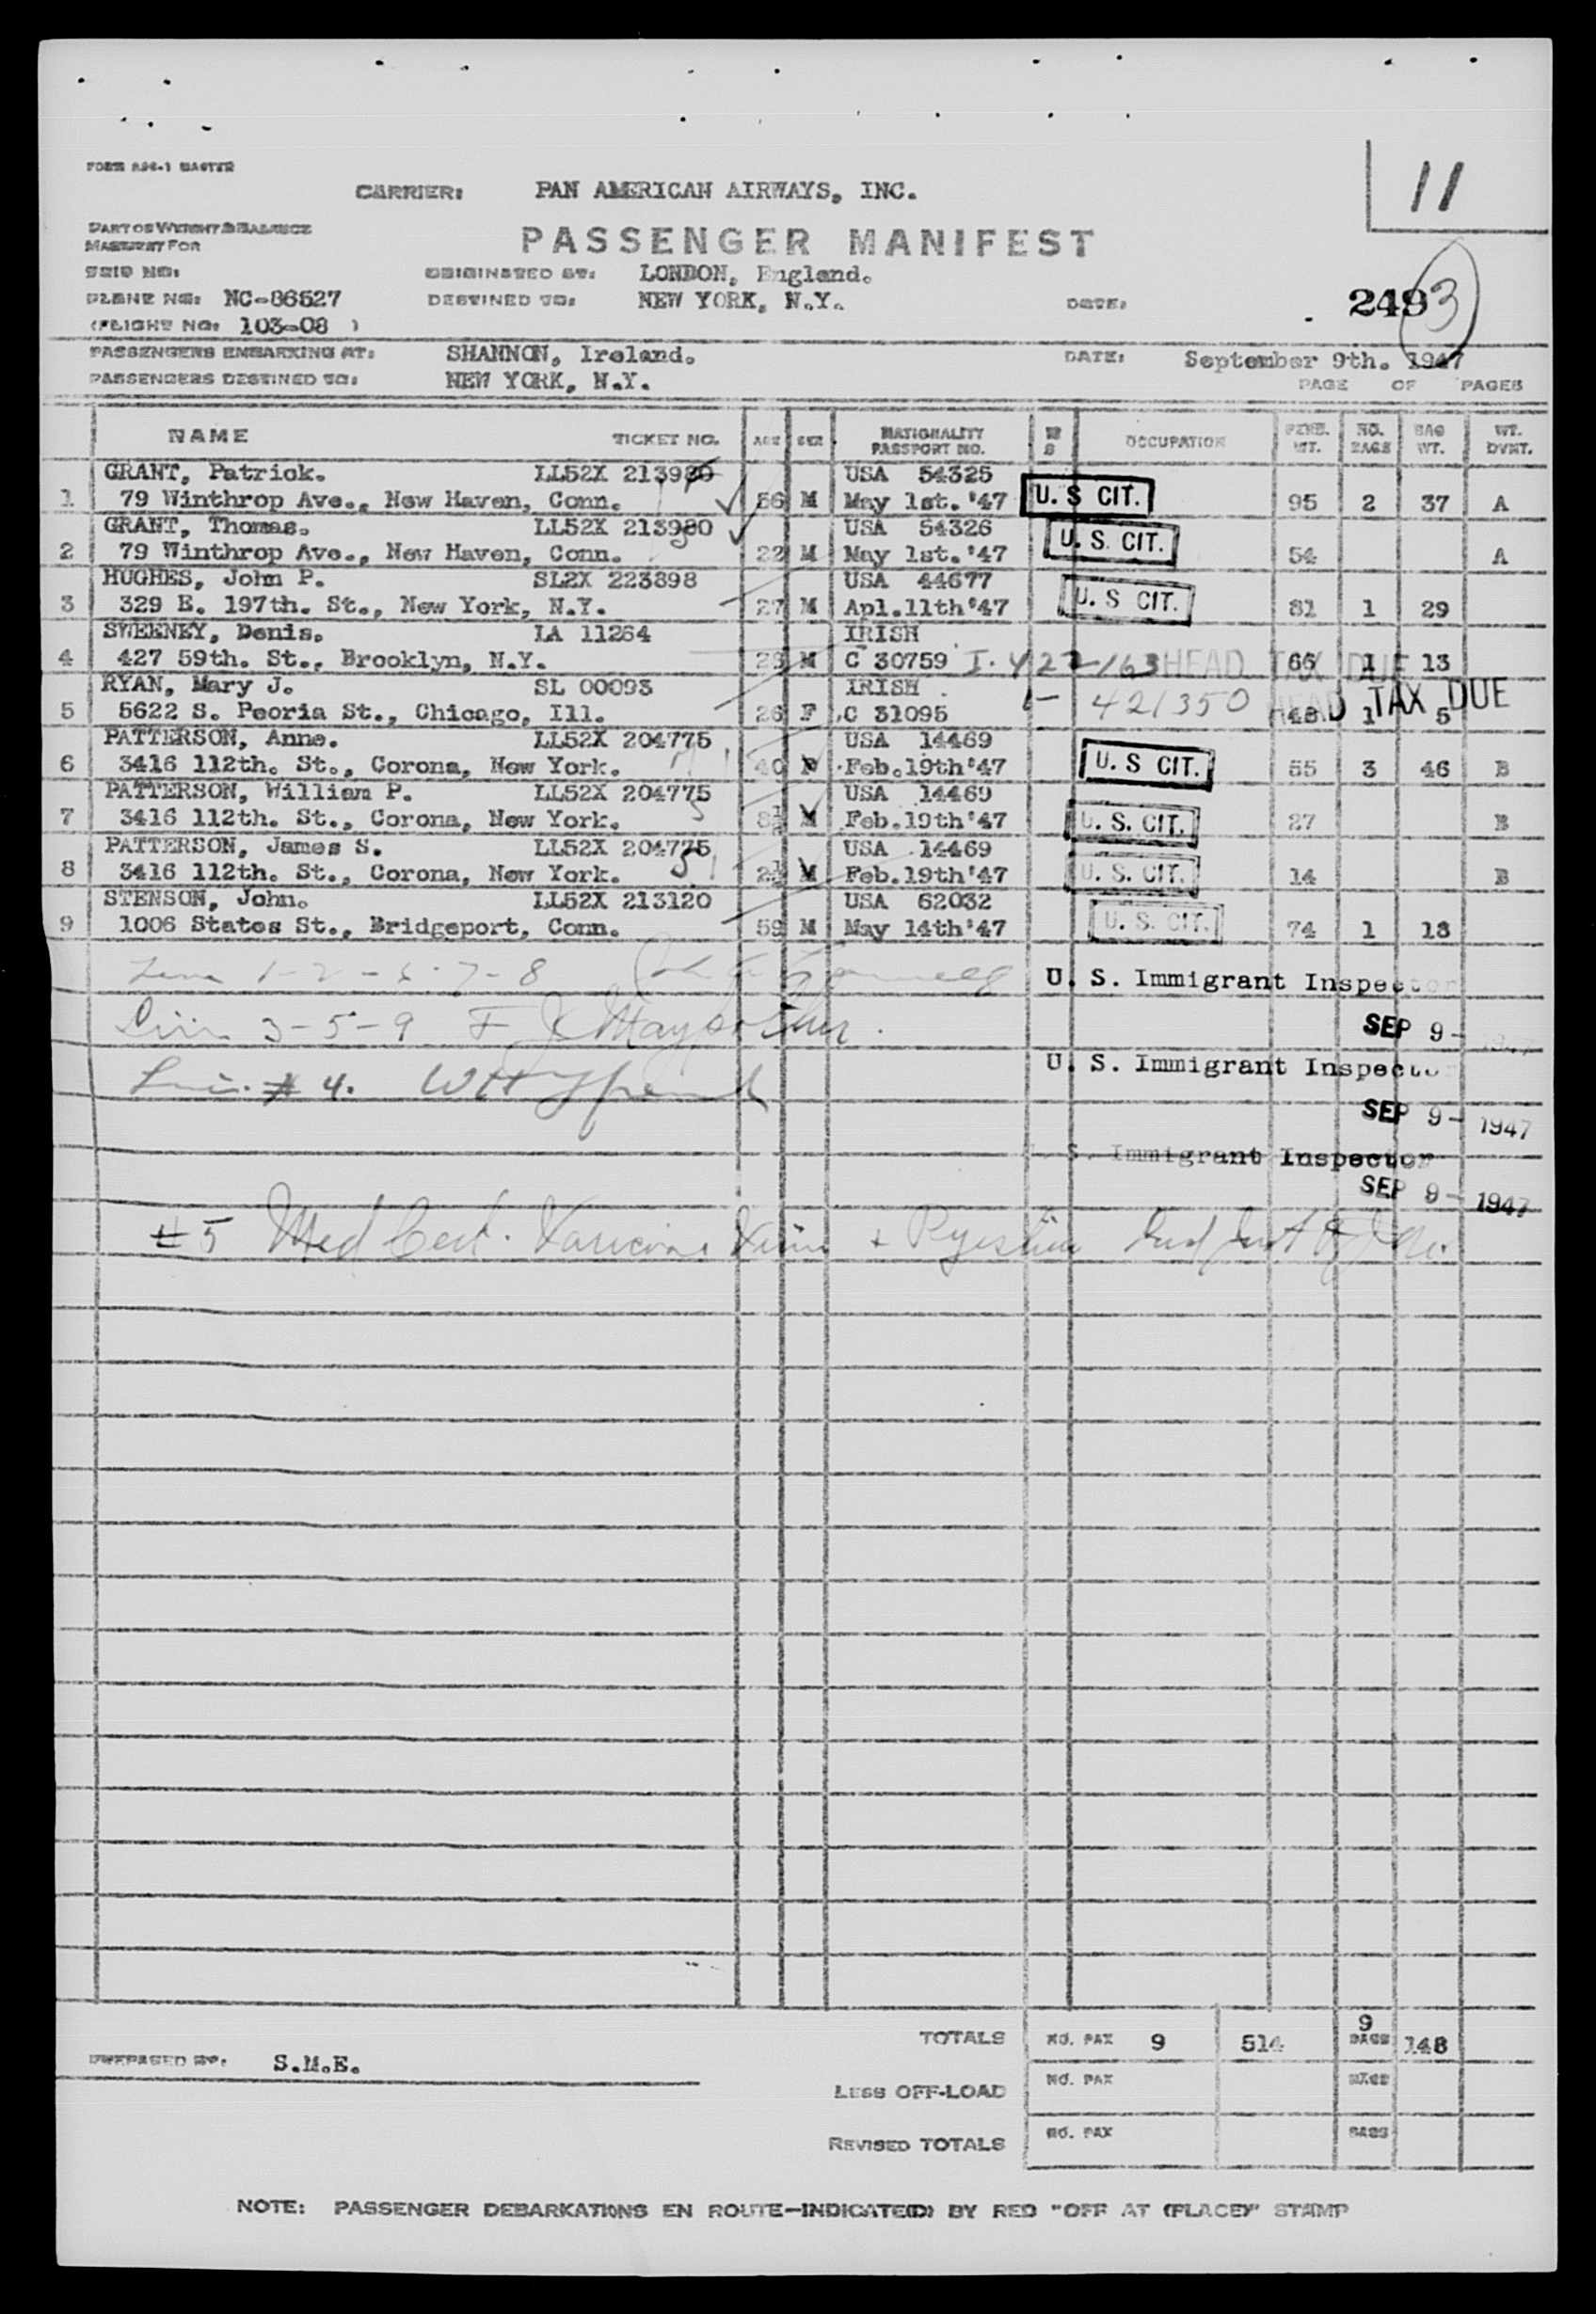 FORM 296-1 MASTER
11
CARRIER: PAN AMERICAN AIRWAYS, INC.
PART OF WEIGHT & BALANCE
MANIFEST FOR
PASSENGER MANIFEST
TRIP NO:
ORIGINATED AT: LONDON, England.
PLANE NO: NC-86527
DESTINED TO: NEW YORK, N.Y.
DATE:
249 3
(FLIGHT NO: 103-08 )
PASSENGERS EMBARKING AT: SHANNON, Ireland. DATE: September 9th. 1947
PASSENGERS DESTINED TO: NEW YORK, N.Y.
PAGE OF PAGES
NAME TICKET NO. AGE SEX NATIONALITY PASSPORT NO. OCCUPATION PERS. WT. NO. BAGS BAG WT. WT. DVNT.
GRANT, Patrick. LL52X 213980 USA 54325
1 79 Winthrop Ave., New Haven, Conn. 56 M May 1st. '47 U. S CIT. 95 2 37 A
GRANT, Thomas. LL52X 213980 USA 54326
2 79 Winthrop Ave., New Haven, Conn. 22 M May 1st. '47 U. S. CIT. 54 A
HUGHES, John P. SL2X 223898 USA 44677
3 329 E. 197th. St., New York, N.Y. 27 M Apl.11th'47 U. S CIT. 81 1 29
SWEENEY, Denis. LA 11264 IRISH
4 427 59th. St., Brooklyn, N.Y. M C 30759 I. 422-163 HEAD TAX DUE 66 1 13
RYAN, Mary J. SL 00093 IRISH
5 5622 S. Peoria St., Chicago, Ill. 26 F C 31095 421350 HEAD TAX DUE 48 1 5
PATTERSON, Anne. LL52X 204775 USA 14469
6 3416 112th. St., Corona, New York. 40 F Feb.19th'47 U. S CIT. 55 3 46 B
PATTERSON, William P. LL52X 204775 USA 14469
7 3416 112th. St., Corona, New York. 8½ M Feb.19th'47 U. S. CIT. 27 B
PATTERSON, James S. LL52X 204775 USA 14469
8 3416 112th. St., Corona, New York. 5 2½ M Feb.19th'47 U. S. CIT. 14 B
STENSON, John. LL52X 213120 USA 62032
9 1006 States St., Bridgeport, Conn. 59 M May 14th'47 U. S. CIT. 74 1 18
1-2-6-7-8
U. S. Immigrant Inspector
3-5-9 F J
SEP 9- 1947
U. S. Immigrant Inspector
# 4.
SEP 9- 1947
S. Immigrant Inspector
SEP 9- 1947
#5 Med Cert. Varicose Veins +
TOTALS NO. PAX 9 514 9 BAGS 148
PREPARED BY: S.M.E.
LESS OFF-LOAD NO. PAX BAGS
REVISED TOTALS NO. PAX BAGS
NOTE: PASSENGER DEBARKATIONS EN ROUTE-INDICATE(D) BY RED "OFF AT (PLACE)" STAMP